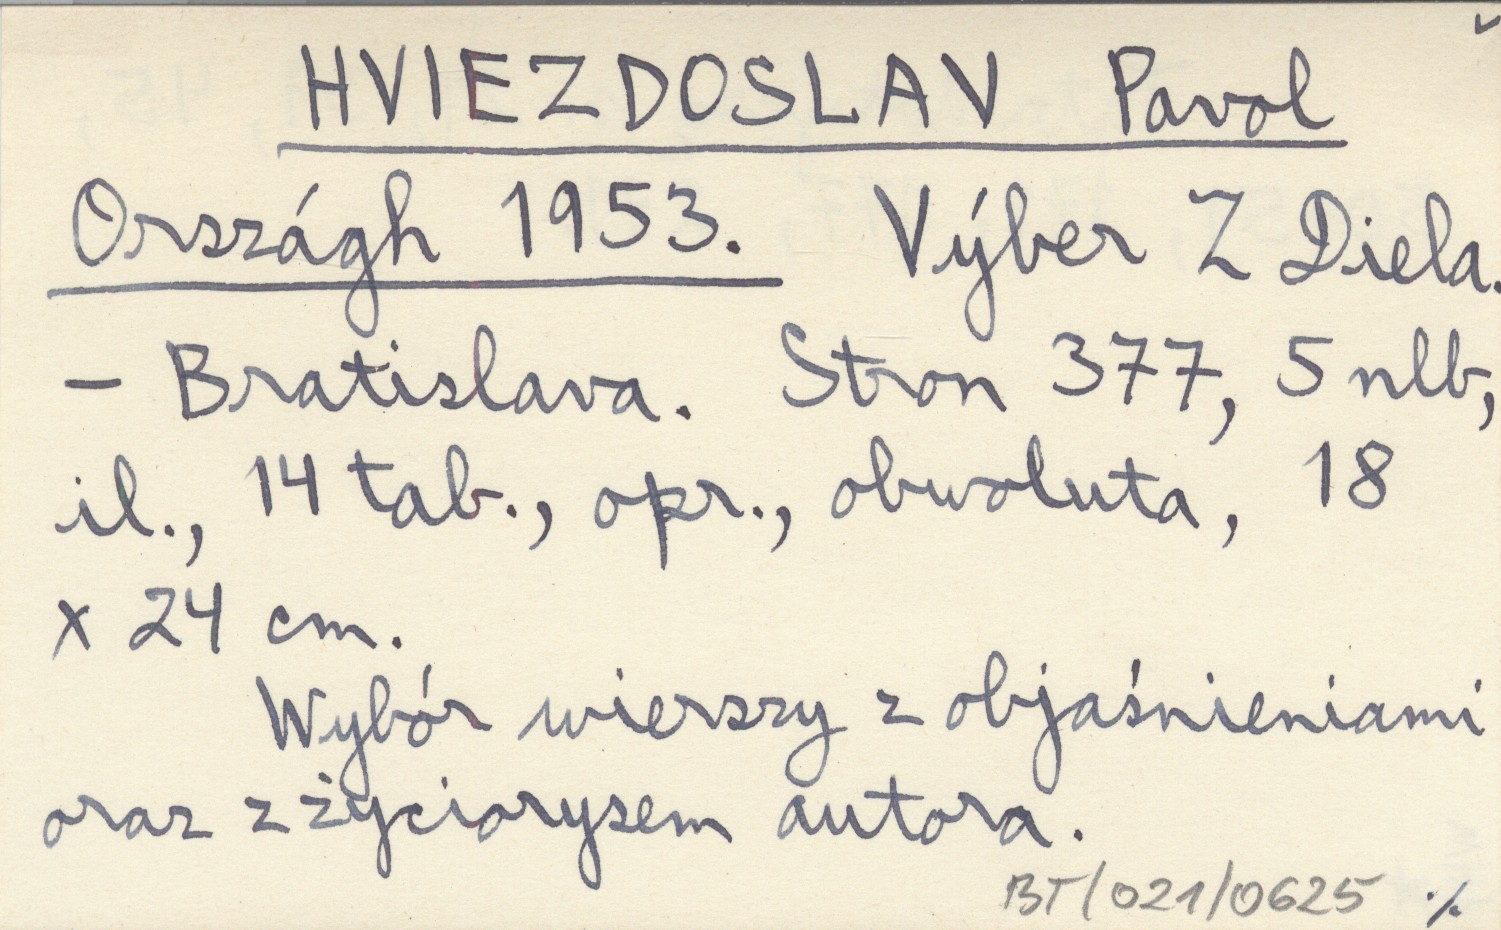 HVIEZDOSLAV Pavol
Országh 1953. Výber Z Diela.
– Bratislava. Stron 377, 5 nlb,
il., 14 tab., opr., obwoluta, 18
x 24 cm.
Wybór wierszy z objaśnieniami
oraz z życiorysem autora.
BT/021/0625 ./.